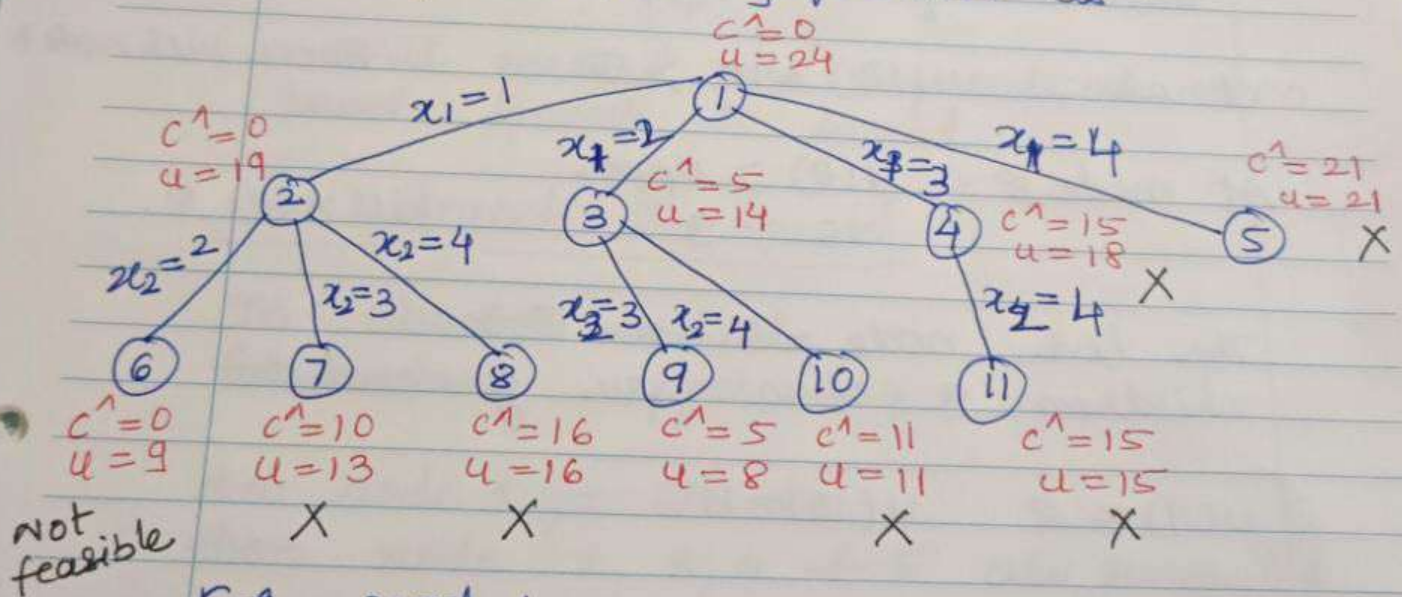 c^=0
u=24
1
x1=1
x1=2
x1=3
x1=4
c^=0
u=19
2
c^=5
u=14
3
c^=15
u=18
4
X
c^=21
u=21
5
X
x2=2
x2=3
x2=4
x2=3
x2=4
x2=4
6
7
8
9
10
11
c^=0
u=9
c^=10
u=13
c^=16
u=16
c^=5
u=8
c^=11
u=11
c^=15
u=15
Not
feasible
X
X
X
X